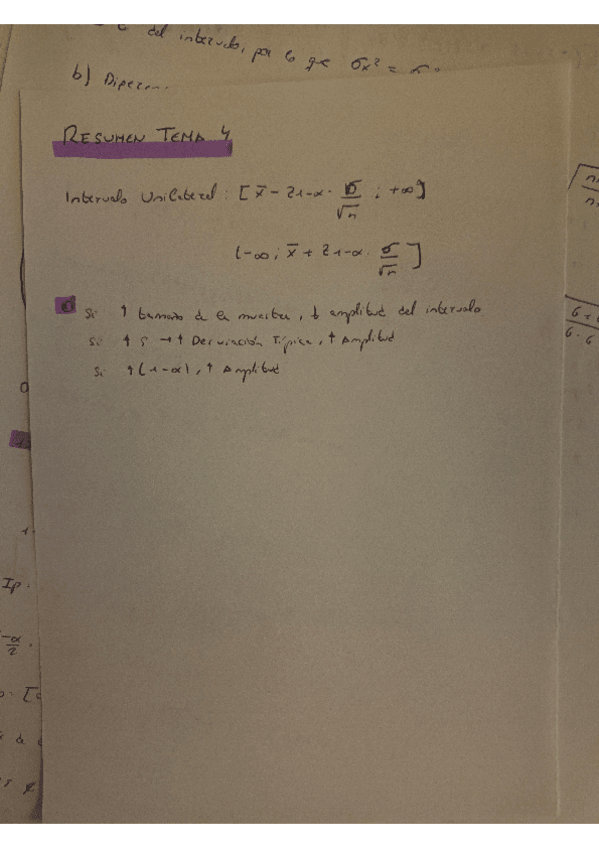 del intervalo, por lo que σx² =
b)
RESUMEN TEMA 4
Intervalo Unilateral: [x̄ - z1-α · σ/√n ; +∞]
(-∞ ; x̄ + z1-α · σ/√n]
Si ↑ tamaño de la muestra, ↓ amplitud del intervalo
Si ↑ S → ↑ Desviación Típica, ↑ Amplitud
Si ↑ (1-α), ↑ Amplitud
Ip: